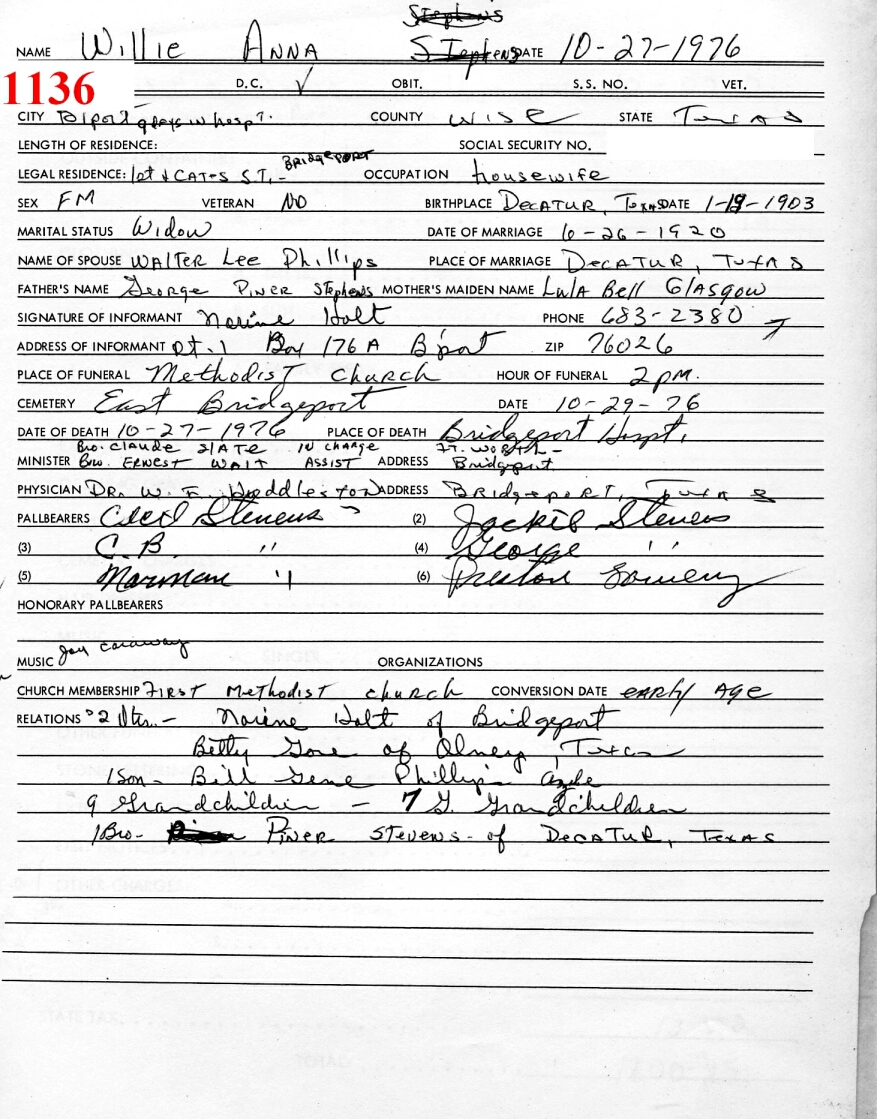 Stephens
NAME Willie Anna Stephens DATE 10-27-1976
1136 D.C. ✓ OBIT. S.S. NO. VET.
CITY B'port 9 days in hospt. COUNTY Wise STATE Texas
LENGTH OF RESIDENCE: SOCIAL SECURITY NO.
LEGAL RESIDENCE: 1st & CATES ST. - BRIDGEPORT OCCUPATION Housewife
SEX FM VETERAN NO BIRTHPLACE DECATUR, TEXAS DATE 1-19-1903
MARITAL STATUS Widow DATE OF MARRIAGE 6-26-1920
NAME OF SPOUSE WALTER Lee Phillips PLACE OF MARRIAGE DECATUR, TEXAS
FATHER'S NAME George PINER Stephens MOTHER'S MAIDEN NAME LulA Bell GlAsgow
SIGNATURE OF INFORMANT Norine Holt PHONE 683-2380
ADDRESS OF INFORMANT Rt. 1 Box 176 A B'port ZIP 76026
PLACE OF FUNERAL Methodist Church HOUR OF FUNERAL 2 pm.
CEMETERY East Bridgeport DATE 10-29-76
DATE OF DEATH 10-27-1976 PLACE OF DEATH Bridgeport Hospt.
Bro. Claude SlATE IN CHARGE FT. WORTH -
MINISTER Bro. ERNEST WAIT ASSIST ADDRESS Bridgeport
PHYSICIAN DR. W. F. Huddleston ADDRESS BRIDGEPORT, TEXAS
PALLBEARERS Cecil Stevens (2) Jackie Stevens
(3) C.B. " (4) George "
(5) Norman " (6) Preston
HONORARY PALLBEARERS
MUSIC Joy Caraway ORGANIZATIONS
CHURCH MEMBERSHIP First Methodist church CONVERSION DATE eARly Age
RELATIONS 2 Dtrs. - Norine Holt of Bridgeport
Betty Gore of Olney, Texas
1 Son - Bill Gene Phillips Azle
9 Grandchildren - 7 G. Grandchildren
1 Bro - PINER STEVENS - of DECATUR, TEXAS